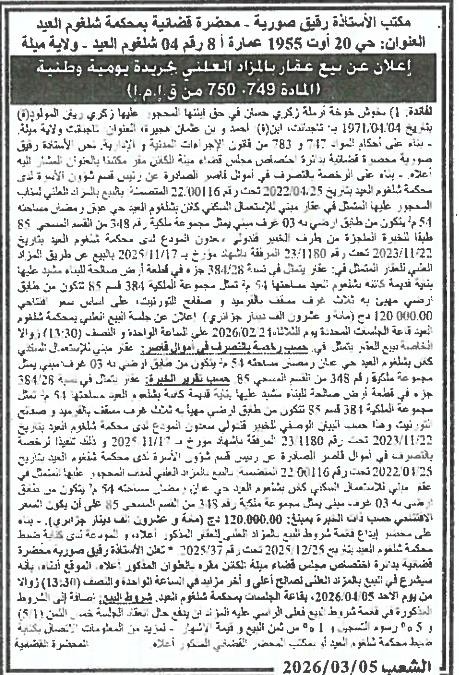 مكتب الأستاذة رقيق صورية - محضرة قضائية بمحكمة شلغوم العيد
العنوان: حي 20 أوت 1955 عمارة أ 8 رقم 04 شلغوم العيد - ولاية ميلة
إعلان عن بيع عقار بالمزاد العلني بجريدة يومية وطنية
(المادة 749، 750 من ق.إ.م.إ)
لفائدة: 1) مخوش خوخة أرملة زكري حسان في حق ابنتها المحجور عليها زكري ريان المولود(ة)
بتاريخ 1971/04/04 بـ: تاجنانت، ابن(ة) أحمد و بن عثمان هجيرة، العنوان تاجنانت ولاية ميلة.
- بناء على أحكام المواد 747 و 783 من قانون الإجراءات المدنية و الإدارية. نحن الأستاذة رقيق
صورية محضرة قضائية بدائرة اختصاص مجلس قضاء ميلة الكائن مقر مكتبنا بالعنوان المشار إليه
أعلاه. - بناء على الرخصة بالتصرف في أموال قاصر الصادرة عن رئيس قسم شؤون الأسرة لدى
محكمة شلغوم العيد بتاريخ 2022/04/25 تحت رقم 22.00116 المتضمنة بالبيع بالمزاد العلني لمناب
المحجور عليها المتمثل في عقار مبني للإستعمال السكني كائن بشلغوم العيد حي عباس رمضان مساحته
54 م² يتكون من طابق أرضي به 03 غرف مبني يمثل مجموعة ملكية رقم 348 من القسم المسحي 85
طبقا للخبرة المنجزة من طرف الخبير قندولي سعدون المودع لدى محكمة شلغوم العيد بتاريخ
2023/11/22 تحت رقم 23/1180 المرفقة بإشهاد مؤرخ بـ 2025/11/17 بالبيع عن طريق المزاد
العلني للعقار المتمثل في: عقار يتمثل في نسبة 384/28 جزء في قطعة أرض صالحة للبناء مشيد عليها
بناية قديمة كائنة بشلغوم العيد مساحتها 54 م² تمثل مجموعة الملكية 384 قسم 85 تتكون من طابق
أرضي مهيئ به ثلاث غرف مسقف بالقرميد و صفائح التورنيت، على أساس سعر افتتاحي
120.000.00 دج (مائة و عشرون ألف دينار جزائري) - إعلان عن جلسة البيع العلني بمحكمة شلغوم
العيد قاعة الجلسات المحددة يوم الثلاثاء 2026/02/24 على الساعة الواحدة و النصف (13:30) زوالا
الخاصة ببيع العقار يتمثل في: حسب رخصة بالتصرف في أموال قاصر: عقار مبني للإستعمال السكني
كائن بشلغوم العيد حي عبان رمضان مساحته 54 م² يتكون من طابق أرضي به 03 غرف مبني يمثل
مجموعة ملكية رقم 348 من القسم المسحي 85. حسب تقرير الخبرة: عقار يتمثل في نسبة 384/28
جزء في قطعة أرض صالحة للبناء مشيد عليها بناية قديمة كائنة بشلغوم العيد مساحتها 54 م² تمثل
مجموعة الملكية 384 قسم 85 تتكون من طابق أرضي مهيأ به ثلاث غرف مسقف بالقرميد و صفائح
التورنيت وهذا حسب البيان الوصفي للخبير قندولي سعدون المودع لدى محكمة شلغوم العيد بتاريخ
2023/11/22 تحت رقم 23/1180 المرفقة بإشهاد مؤرخ بـ 2025/11/17 و ذلك تنفيذا لرخصة
بالتصرف في أموال قاصر الصادرة عن رئيس قسم شؤون الأسرة لدى محكمة شلغوم العيد بتاريخ
2022/04/25 تحت رقم 22.00116 المتضمنة بالبيع بالمزاد العلني لمناب المحجور عليها المتمثل في
عقار مبني للإستعمال السكني كائن بشلغوم العيد حي عبان رمضان مساحته 54 م² يتكون من طابق
أرضي به 03 غرف مبني يمثل مجموعة ملكية رقم 348 من القسم المسحي 85 على أن يكون السعر
الافتتاحي حسب ذات الخبرة بمبلغ: 120.000.00 دج (مائة و عشرون ألف دينار جزائري). - بناء
على محضر إيداع قائمة شروط البيع للعقار المذكور أعلاه، و المودعة لدى كتابة ضبط
محكمة شلغوم العيد بتاريخ 2025/12/25 تحت رقم 2025/37 * تعلن الأستاذة رقيق صورية محضرة
قضائية بدائرة اختصاص مجلس قضاء ميلة الكائن مقره بالعنوان المذكور أعلاه، الموقع أدناه، بأنه
سيشرع في البيع بالمزاد العلني لصالح أعلى و آخر مزايد في الساعة الواحدة والنصف (13:30) زوالا
من يوم الاحد 2026/04/05، بقاعة الجلسات بمحكمة شلغوم العيد. شروط البيع: إضافة إلى الشروط
المذكورة في قائمة شروط البيع فعلى الراسي عليه المزاد أن يدفع حال انعقاد الجلسة خمس الثمن (5/1)
و 5% رسوم التسجيل و 1% من ثمن البيع و قيمة الإشهار - لمزيد من المعلومات الاتصال بكتابة
ضبط محكمة شلغوم العيد أو بمكتب المحضر القضائي المذكور أعلاه المحضرة القضائية
الشعب 2026/03/05